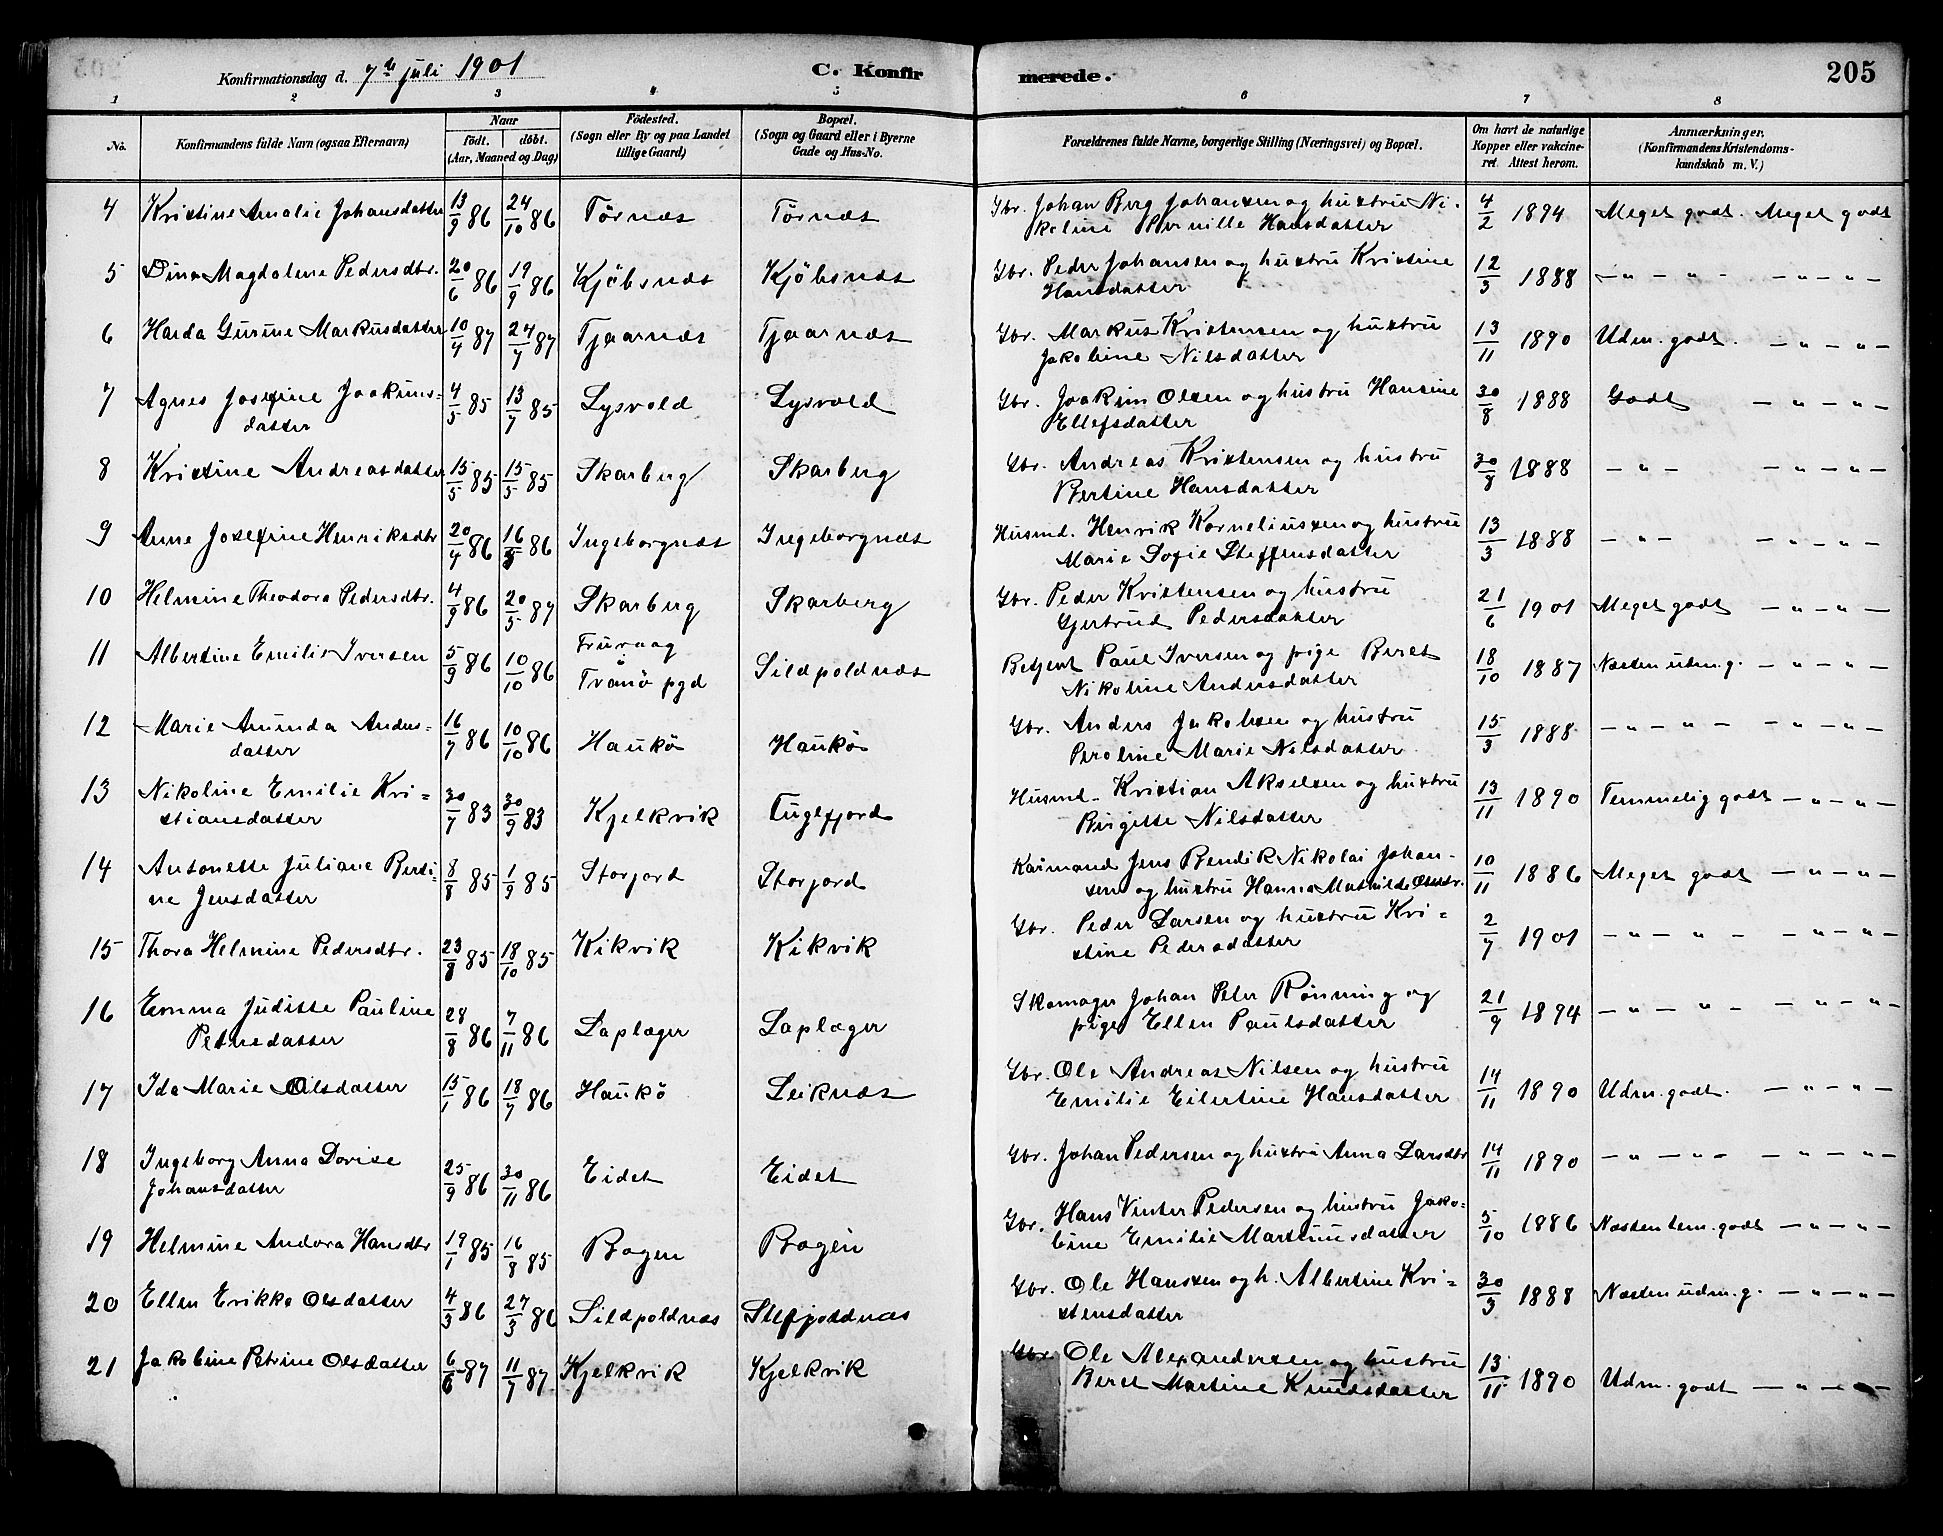 Konfirmationsdag d. 7de juli 1901 C. Konfirmerede. 205
1 2 3 4 5 6 7 8
No. Konfirmandens fulde Navn (ogsaa Efternavn) Naar født. døbt. (Aar, Maaned og Dag) Fødested. (Sogn eller By og paa Landet tillige Gaard) Bopæl. (Sogn og Gaard eller i Byerne Gade og Hus-No. Forældrenes fulde Navne, borgerlige Stilling (Næringsvei) og Bopæl. Om havt de naturlige Kopper eller vakcineret. Attest herom. Anmærkninger. (Konfirmandens Kristendomskundskab m. V.)
4 Kristine Amalie Johansdatter 13/9 86 24/10 86 Tørnæs Tørnæs Gbr. Johan Berg Johansen og hustru Ni-
koline Pernille Hansdatter 4/2 1894 Meget godt. Meget godt
5 Dina Magdalene Pedersdtr. 20/6 86 19/9 86 Kjöbsnæs Kjöbsnæs Gbr. Peder Johansen og hustru Kristine
Hansdatter 12/3 1888 — " — " - — " — " —
6 Harda Gurine Markusdatter 10/4 87 24/7 87 Tjaarnæs Tjaarnæs Gbr. Markus Kristensen og hustru
Jakobine Nilsdatter 13/11 1890 Udm. godt. — " — " —
7 Agnes Josefine Joakims-
datter 4/5 85 13/7 85 Lysvold Lysvold Gbr. Joakim Olsen og hustru Hansine
Ellefsdatter 30/8 1888 Godt — " — " —
8 Kristine Andreasdatter 15/5 85 15/5 85 Skarberg Skarberg Gbr. Andreas Kristensen og hustru
Bertine Hansdatter 30/8 1888 — " — — " — " —
9 Anne Josefine Henriksdtr 20/4 86 16/5 86 Ingeborgnæs Ingeborgnæs Husmd. Henrik Korneliussen og hustru
Marie Sofie Steffensdatter 13/3 1888 — " — — " — " —
10 Helmine Theodora Pedersdtr. 4/9 86 20/5 87 Skarberg Skarberg Gbr. Peder Kristensen og hustru
Gjertrud Pedersdatter 21/6 1901 Meget godt — " — " —
11 Albertine Emilie Iversen 5/9 86 10/10 86 Truvaag
Tranö pgd Sildpoldnæs Betjent Paul Iversen og pige Beret
Nikoline Andersdatter 18/10 1887 Næsten udm. g. — " — " —
12 Marie Amunda Anders-
datter 16/7 86 10/10 86 Haukö Haukö Gbr. Anders Jakobsen og hustru
Peroline Marie Nilsdatter 15/3 1888 — " — " — — " — " —
13 Nikoline Emilie Kri-
stiansdatter 30/7 83 30/9 83 Kjelkvik Fuglefjord Husmd. Kristian Akselsen og hustru
Birgitte Nilsdatter 13/11 1890 Temmelig godt — " — " —
14 Antonette Juliane Berti-
ne Jensdatter 8/8 85 1/9 85 Storjord Storjord Kaarmand Jens Bendik Nikolai Johan-
sen og hustru Hanna Mathilde Olsdtr. 10/11 1886 Meget godt — " — " —
15 Thora Helmine Pedersdtr. 23/8 85 18/10 85 Kikvik Kikvik Gbr. Peder Larsen og hustru Kri-
stine Pedersdatter 2/7 1901 — " — " — — " — " —
16 Emma Juditte Pauline
Petersdatter 28/8 86 7/11 86 Laplæger Laplæger Skomager Johan Peter Rönning og
pige Ellen Paulsdatter 21/9 1894 — " — " — " — " —
17 Ida Marie Olsdatter 15/1 86 18/7 86 Haukö Leiknæs Gbr. Ole Andreas Nilsen og hustru
Emilie Eilertine Hansdatter 14/11 1890 Udm. godt. — " — " —
18 Ingeborg Anna Dorise
Johansdatter 25/9 86 30/11 86 Eidet Eidet Gbr. Johan Pedersen og hustru Anna Larsdtr 14/11 1890 — " — " — — " — " —
19 Helmine Andora Hansdtr 19/1 85 16/8 85 Bogen Bogen Gbr. Hans Vinter Pedersen og hustru Jako-
bine Emilie Martinusdatter 5/10 1886 Næsten tem. godt — " — " —
20 Ellen Erikka Olsdatter 4/3 86 27/3 86 Sildpoldnæs Stefjordnæs Gbr. Ole Hanssen og h. Albertine Kri-
stensdatter 30/3 1888 Næsten udm. g. — " — " —
21 Jakobine Petrine Olsdatter 6/6 87 11/7 87 Kjelkvik Kjelkvik Gbr. Ole Alexandersen og hustru
Beret Martine Knudsdatter 13/11 1890 Udm. godt — " — " —